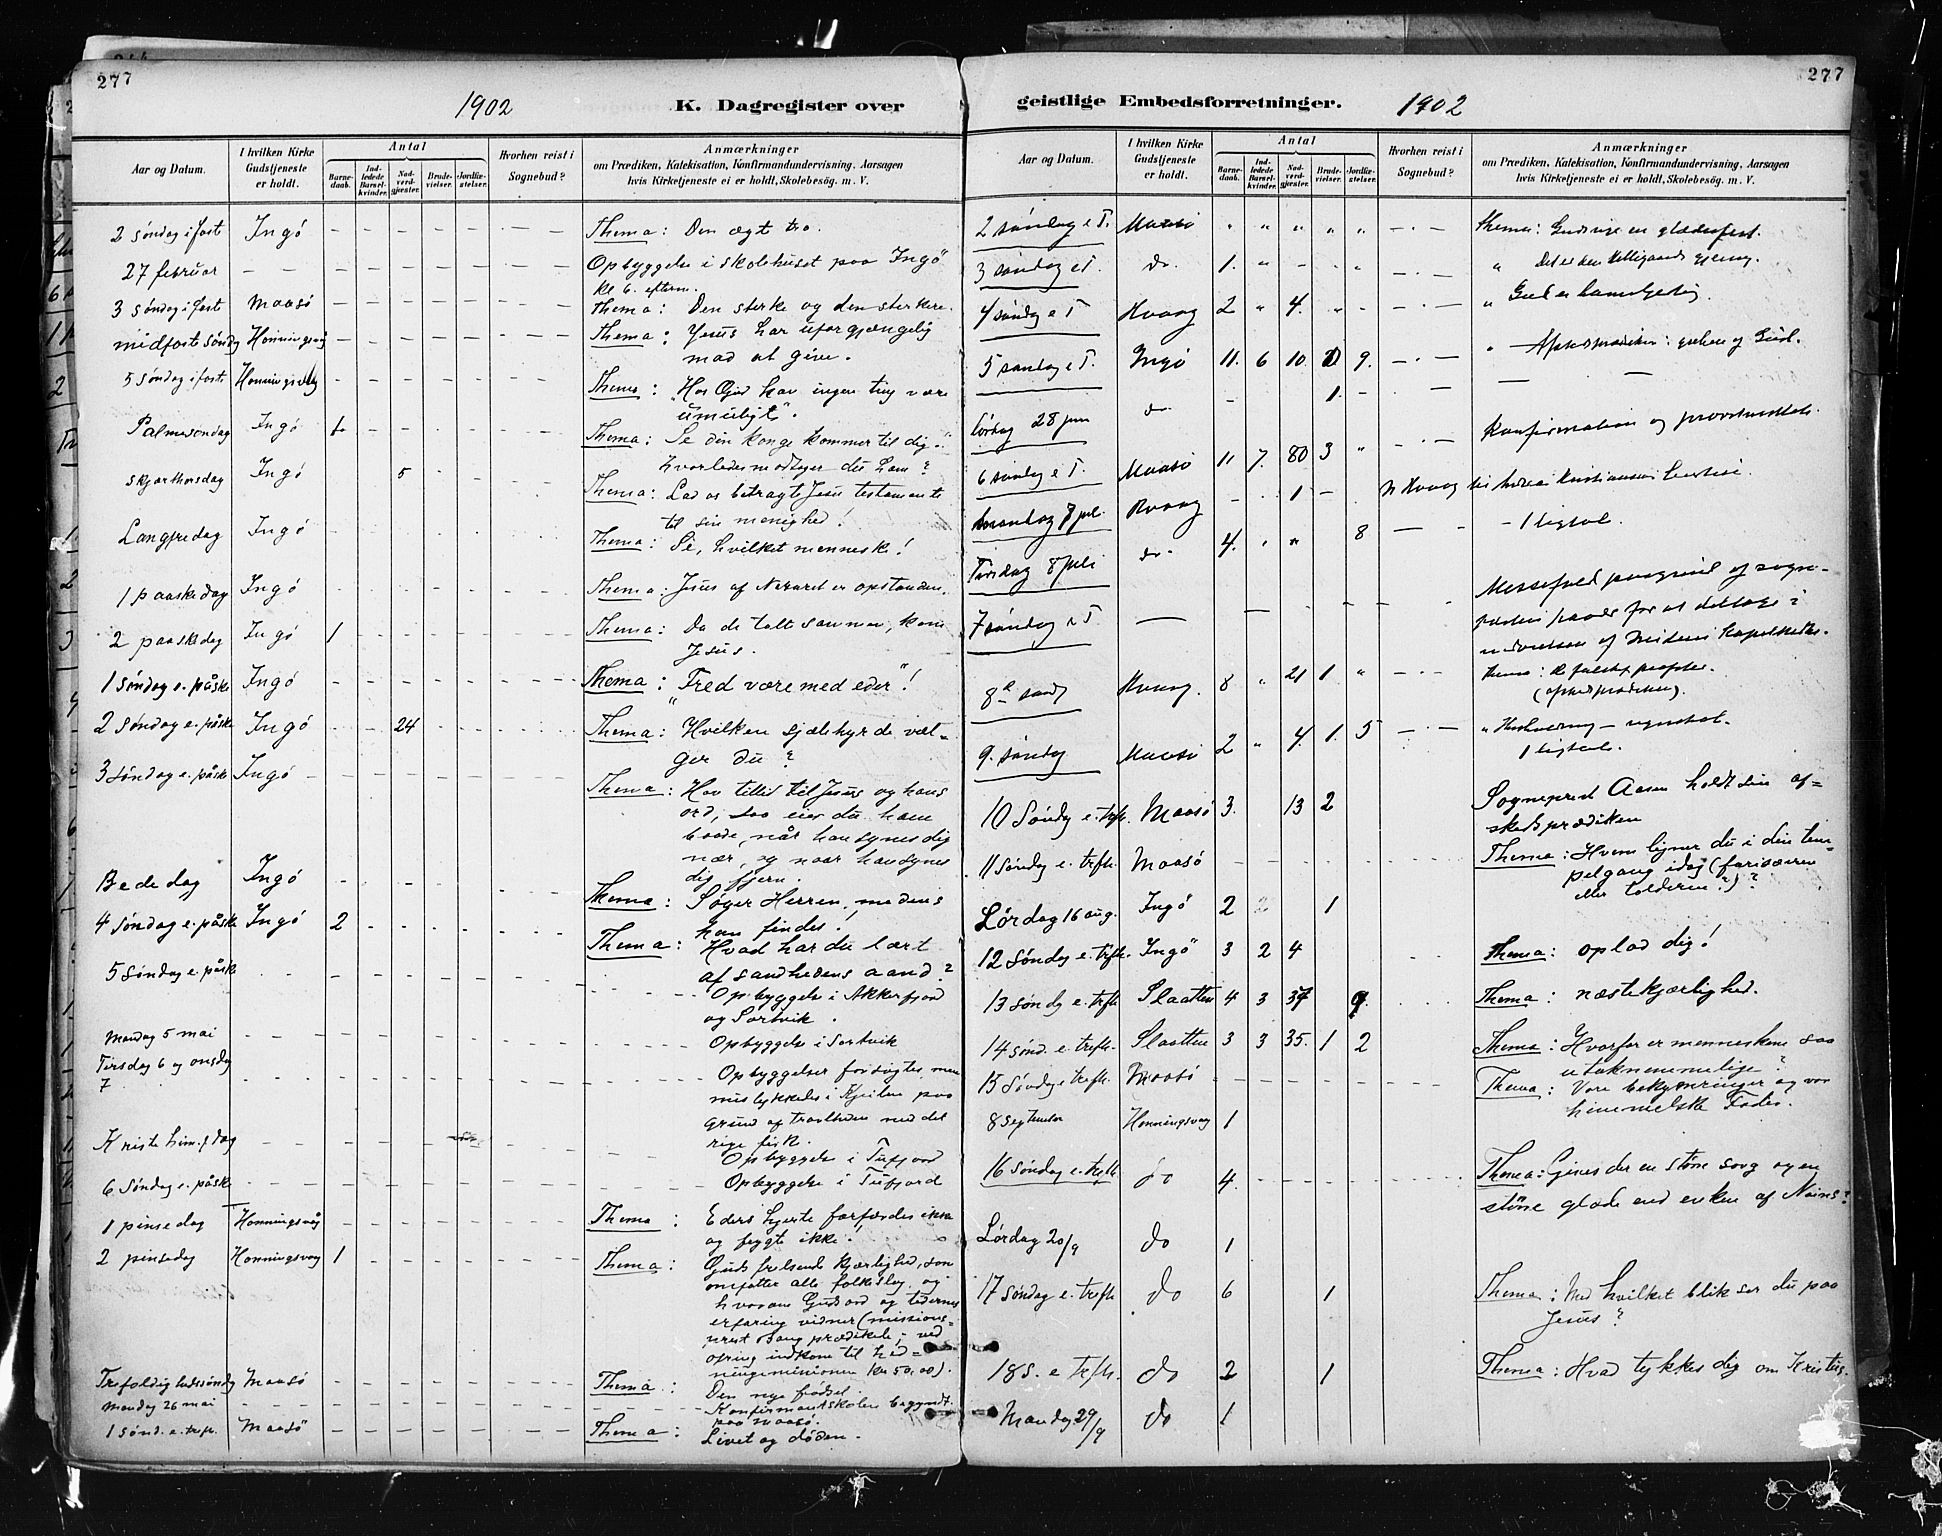 277
1902
K. Dagregister over
Aar og Datum.
I hvilken Kirke Gudstjeneste er holdt.
Antal
Barnedaab.
Indledede Barselkvinder.
Nadverdgjester.
Brudevielser.
Jordfæstelser.
Hvorhen reist i Sognebud?
Anmærkninger
om Prædiken, Katekisation, Konfirmandundervisning, Aarsagen
hvis Kirketjeneste ei er holdt, Skolebesøg. m. V.
2 søndag i fast Ingø Thema: Den ægt tro.
27 februar Opbyggelse i skolehuset paa Ingö
kl 6. efterm.
3 søndag i fast Maasø Thema: Den sterke og den sterkere.
midfaste søndg Honningsvåg Thema: Jesus har uforgjængelig
mad at give.
5 søndag i faste Honningsvåg Thema: "Hos Gud kan ingen ting være
umuligt".
Palmesøndag Ingø 1 Thema: Se din konge kommer til dig.
hvorledes modtager du ham?
skjærthorsdag Ingø 5 Thema: Lad os betragte Jesu testamente
til sin menighed!
Langfredag Ingø Thema: Se, hvilket menneske!
1 paaskedag Ingø Thema: Jesus af Nazaret er opstanden.
2 paaskedag Ingø 1 Thema: Da de talte sammen, kom
Jesus.
1 søndag e. påske Ingø Thema: "Fred være med eder"!
2 søndag e. påske Ingø 24 Thema: Hvilken sjælehyrde væl-
ger du?
3 søndag e. påske Ingø Thema: Hav tillid til Jesus og hans
ord, saa eier du ham
baade, når han synes dig
nær, og naar han synes
dig fjern.
Bededag Ingø Thema: Søger Herren, medens
han findes!
4 søndag e. påske Ingø 2 Thema: Hvad har du lært
af sandhedens aand?
5 søndag e. påsk Opbyggelse i Akkerfjord
og Sortvik.
Mandag 5 mai Opbyggelse i Sortvik
Tirsdag 6 og onsdg
7 Opbyggelser forsøgtes, men
mislykkedes i Kjeilen paa
grund af travlheden med det
rige fisk.
Kriste himf. dag Opbyggelse i Tufjord
6 søndag e. påske Opbyggelse i Tufjord
1 pinsedag Honningsvåg Thema: Eders hjerte forfærdes ikke
og frygte ikke!
2 pinsedag Honningsvag 1 Thema: Guds frelsende kjærlighed, som
omfatter alle folkeslag, og
hvorom Guds ord og tidernes
erfaring vidner (missions-
prest prædikede; ved
ofring indkom til hed-
ningemissionen kr 50,00).
Trefoldighedssøndg Maasø Thema: Den nye fødsel.
Mandag 26 mai Konfirmantskolen begyndt
paa Maasø.
1 sønd. e. trefh. Maasö Thema: Livet og døden.
277
geistlige Embedsforretninger.
1902
Aar og Datum.
I hvilken Kirke Gudstjeneste er holdt.
Antal
Barnedaab.
Indledede Barselkvinder.
Nadverdgjester.
Brudevielser.
Jordfæstelser.
Hvorhen reist i Sognebud?
Anmærkninger
om Prædiken, Katekisation, Konfirmandundervisning, Aarsagen
hvis Kirketjeneste ei er holdt, Skolebesøg. m. V.
2 søndag e T. Maasø " " " " " Thema: Guds rige en glædesfest.
3 søndag e T. do. 1. " Det er den Helligaands gjerning.
4 søndg e T Kvaag 2 " 4. " Gud er barmhjertig.
5 søndag e T. Ingø 11. 6 10. 9. " Afskedsprædiken:
Lördag 28 juni do 1.
6 søndag e T. Maasø 11 7. 80 3 " Konfirmation og
Mandag 7 juli. Kvaag 1
Tirsdag 8 juli do. 4. " " 8 1 ligtale.
7 søndag e T Messefald paagrund af sogne-
presten for at deltage i
indvielsen af kapel
8de sønd Kvaag. 8 " 21 1 " Thema: De falske profeter.
(afskedsprædiken).
9. søndg Maasø 2 " 4. 1. 5
1 ligtale.
10 søndg e. trfh. Maasø 3. 13 2 Sognepræst Aasen holdt sin af-
skedsprædiken
11 søndg e. trfh. Maasø Thema: Hvem ligner du i din tem-
pelgang idag (farisæeren
eller tolderen?)?
Lørdag 16 aug. Ingö 2 2 1
12 søndg e. trfh. Ingö 3 2 4 Thema: oplad dig!
13 søndg e. trfh Slaatten 4 3 37 9 Thema: næstekjærlighed.
14 sønd. e. trefh. Slaatten 3 3 35. 1 2 Thema: Hvorfor er menneskene saa
utaknemmelige?
15 søndg e trefh. Maasö Thema: Vore bekymringer og vor
himmelske Fader.
8 september Honningsvag 1
16 søndag e. trefh do 4. Thema: Gives der en større sorg og en
större glæde end enken af Nains?
Lørdag 20/9 do 1
17 søndag e. trefh do 6 1 Thema: Med hvilket blik ser du paa
Jesus?
18 s. e trefh. do 2 1 Thema: Hvad tykkes dig om Kristus.
Mandag 29/9 do 1